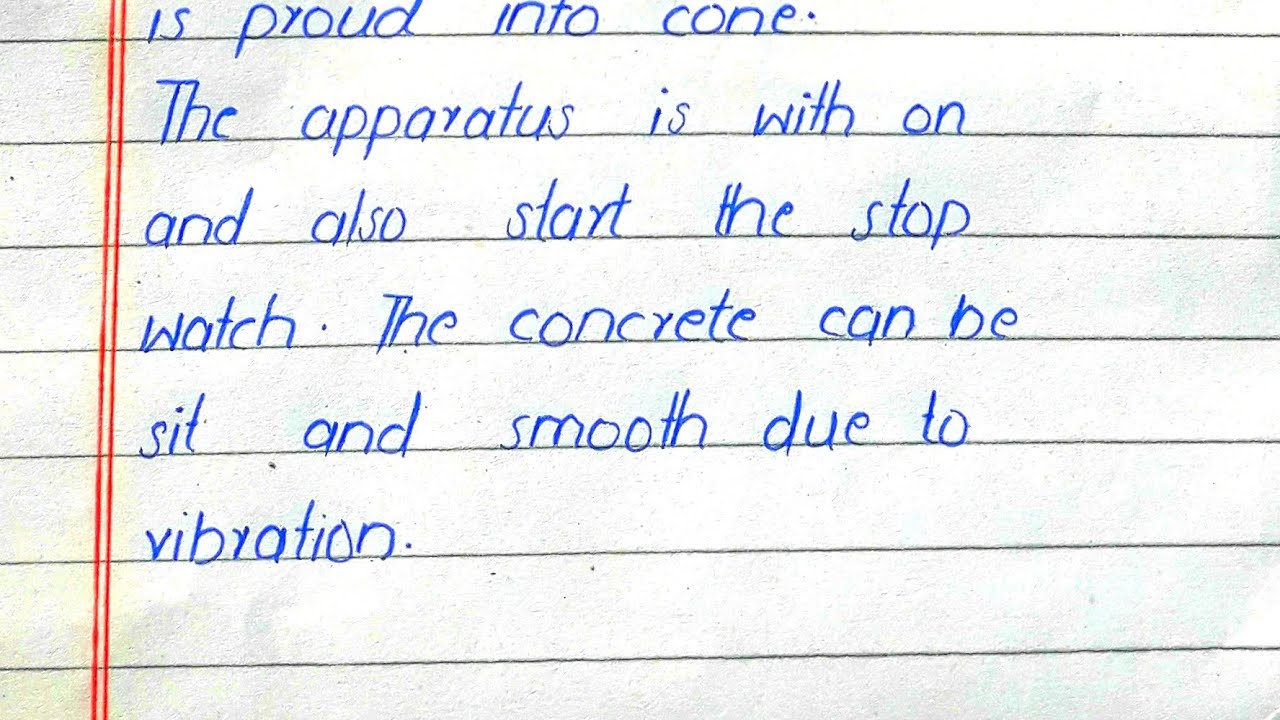 is proud into cone.
The apparatus is with on
and also start the stop
watch. The concrete can be
sit and smooth due to
vibration.